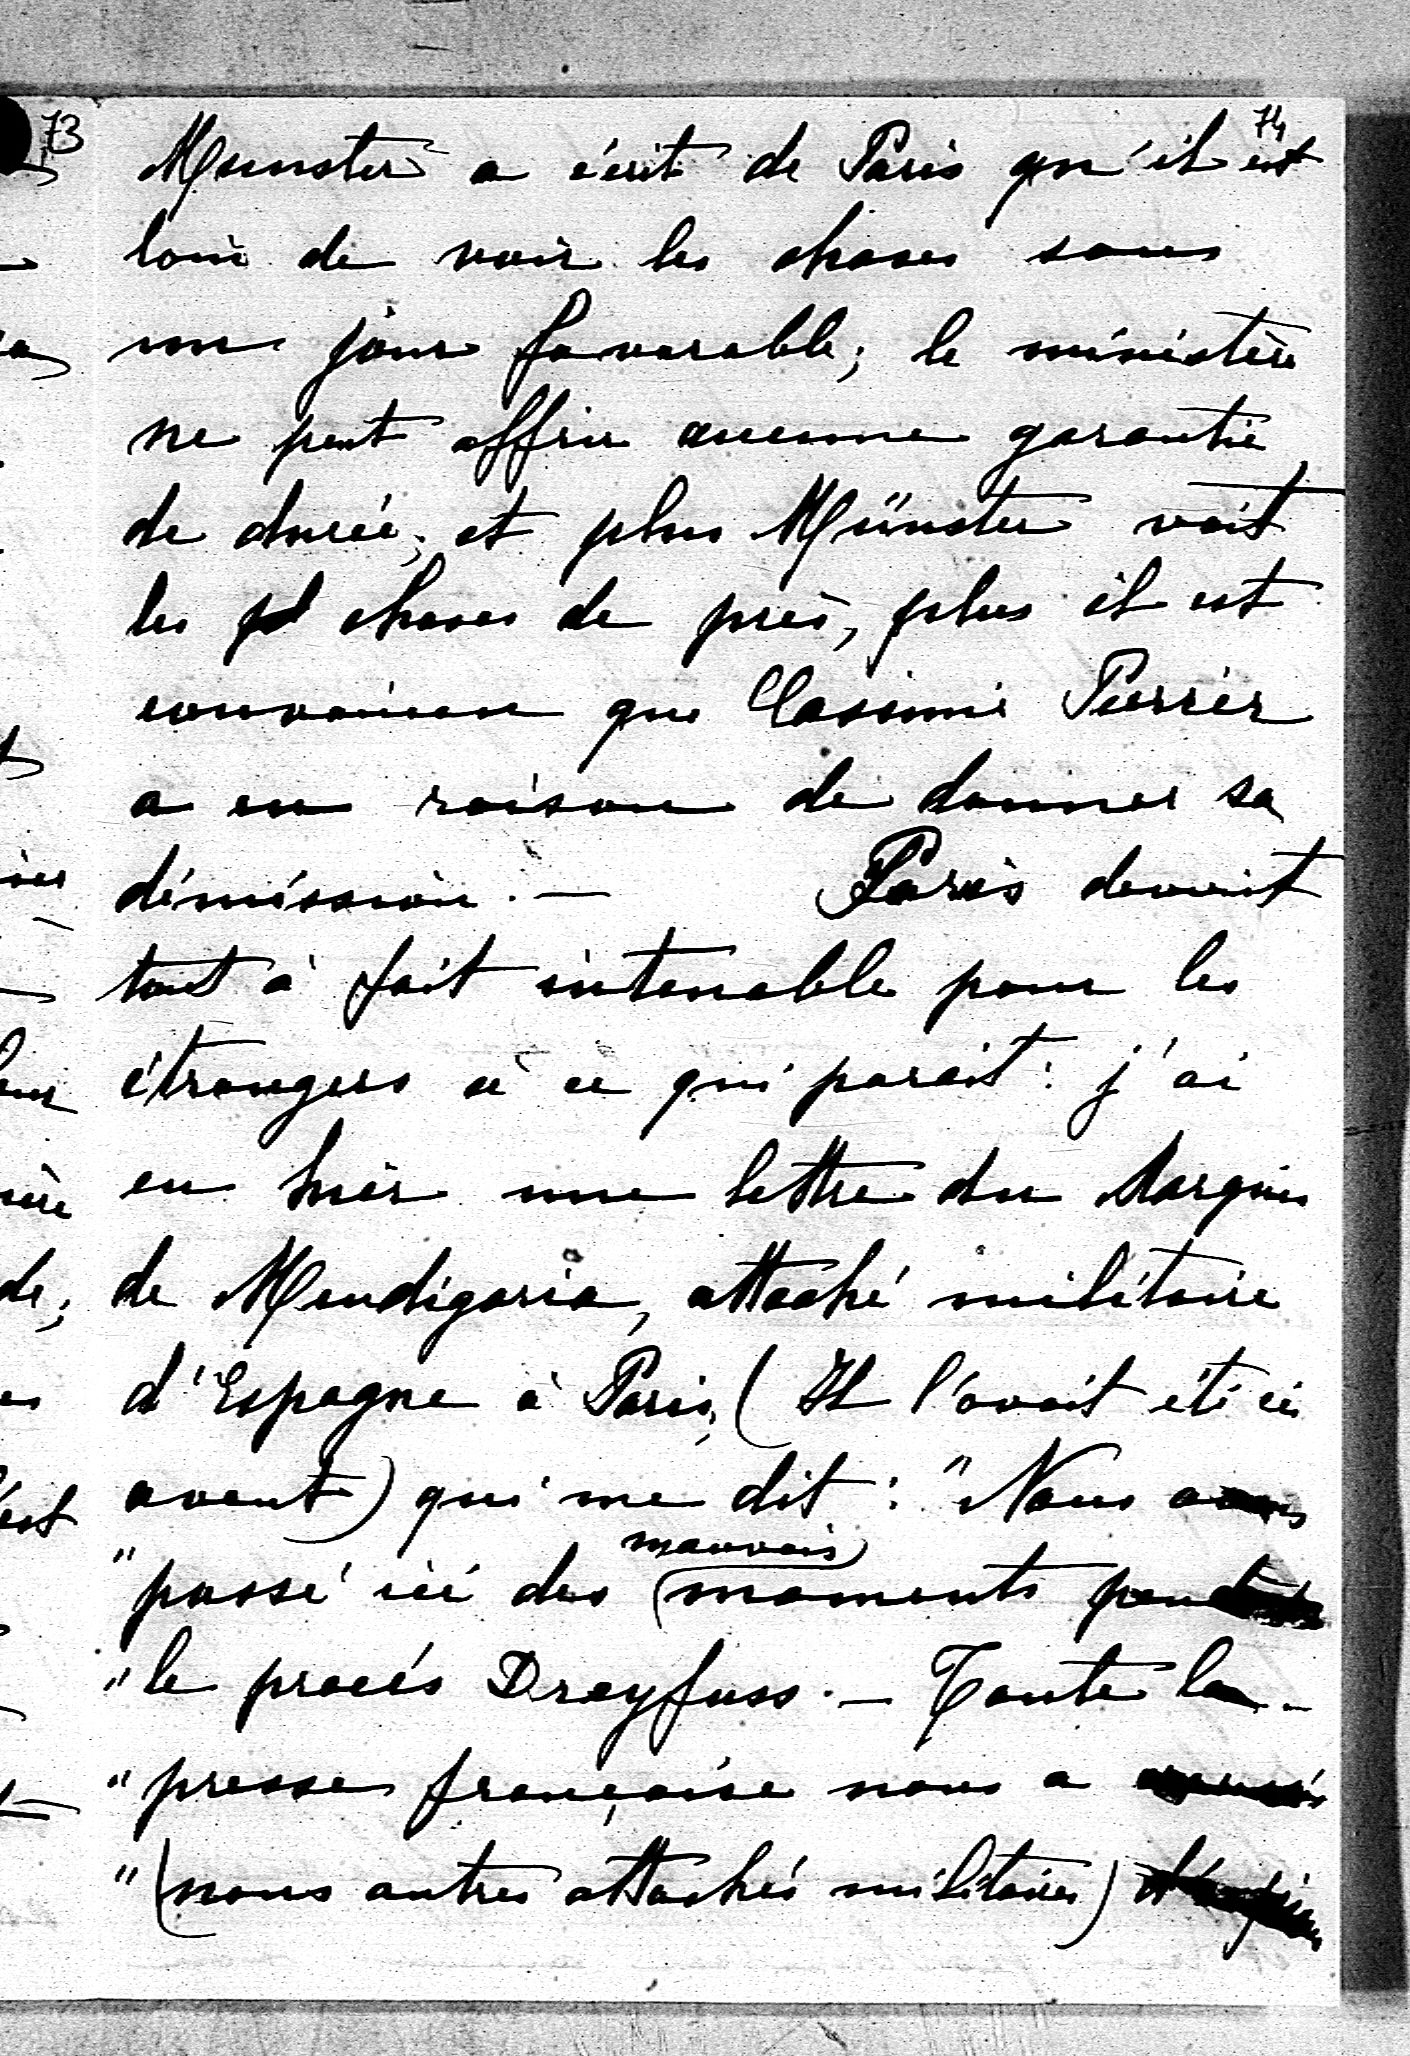 73
74
Munster a écrit de Paris qu'il est
loin de voir les choses sous
un jour favorable; le ministère
ne peut offrir aucune garantie
de durée, et plus Münster voit
les choses de près, plus il est
convaincu que Casimir Perrier
a eu raison de donner sa
démission. — Paris devient
tout à fait intenable pour les
étrangers à ce qui parait: j'ai
eu hier une lettre du Marquis
de Mendigoria, attaché militaire
d'Espagne à Paris, (Il l'avait été ici
avant) qui me dit: "Nous avons
mauvais
"passé ici des moments pendant
"le procés Dreyfuss. — Toute la
"presse française nous a accusés
"(nous autres attachés militaires)